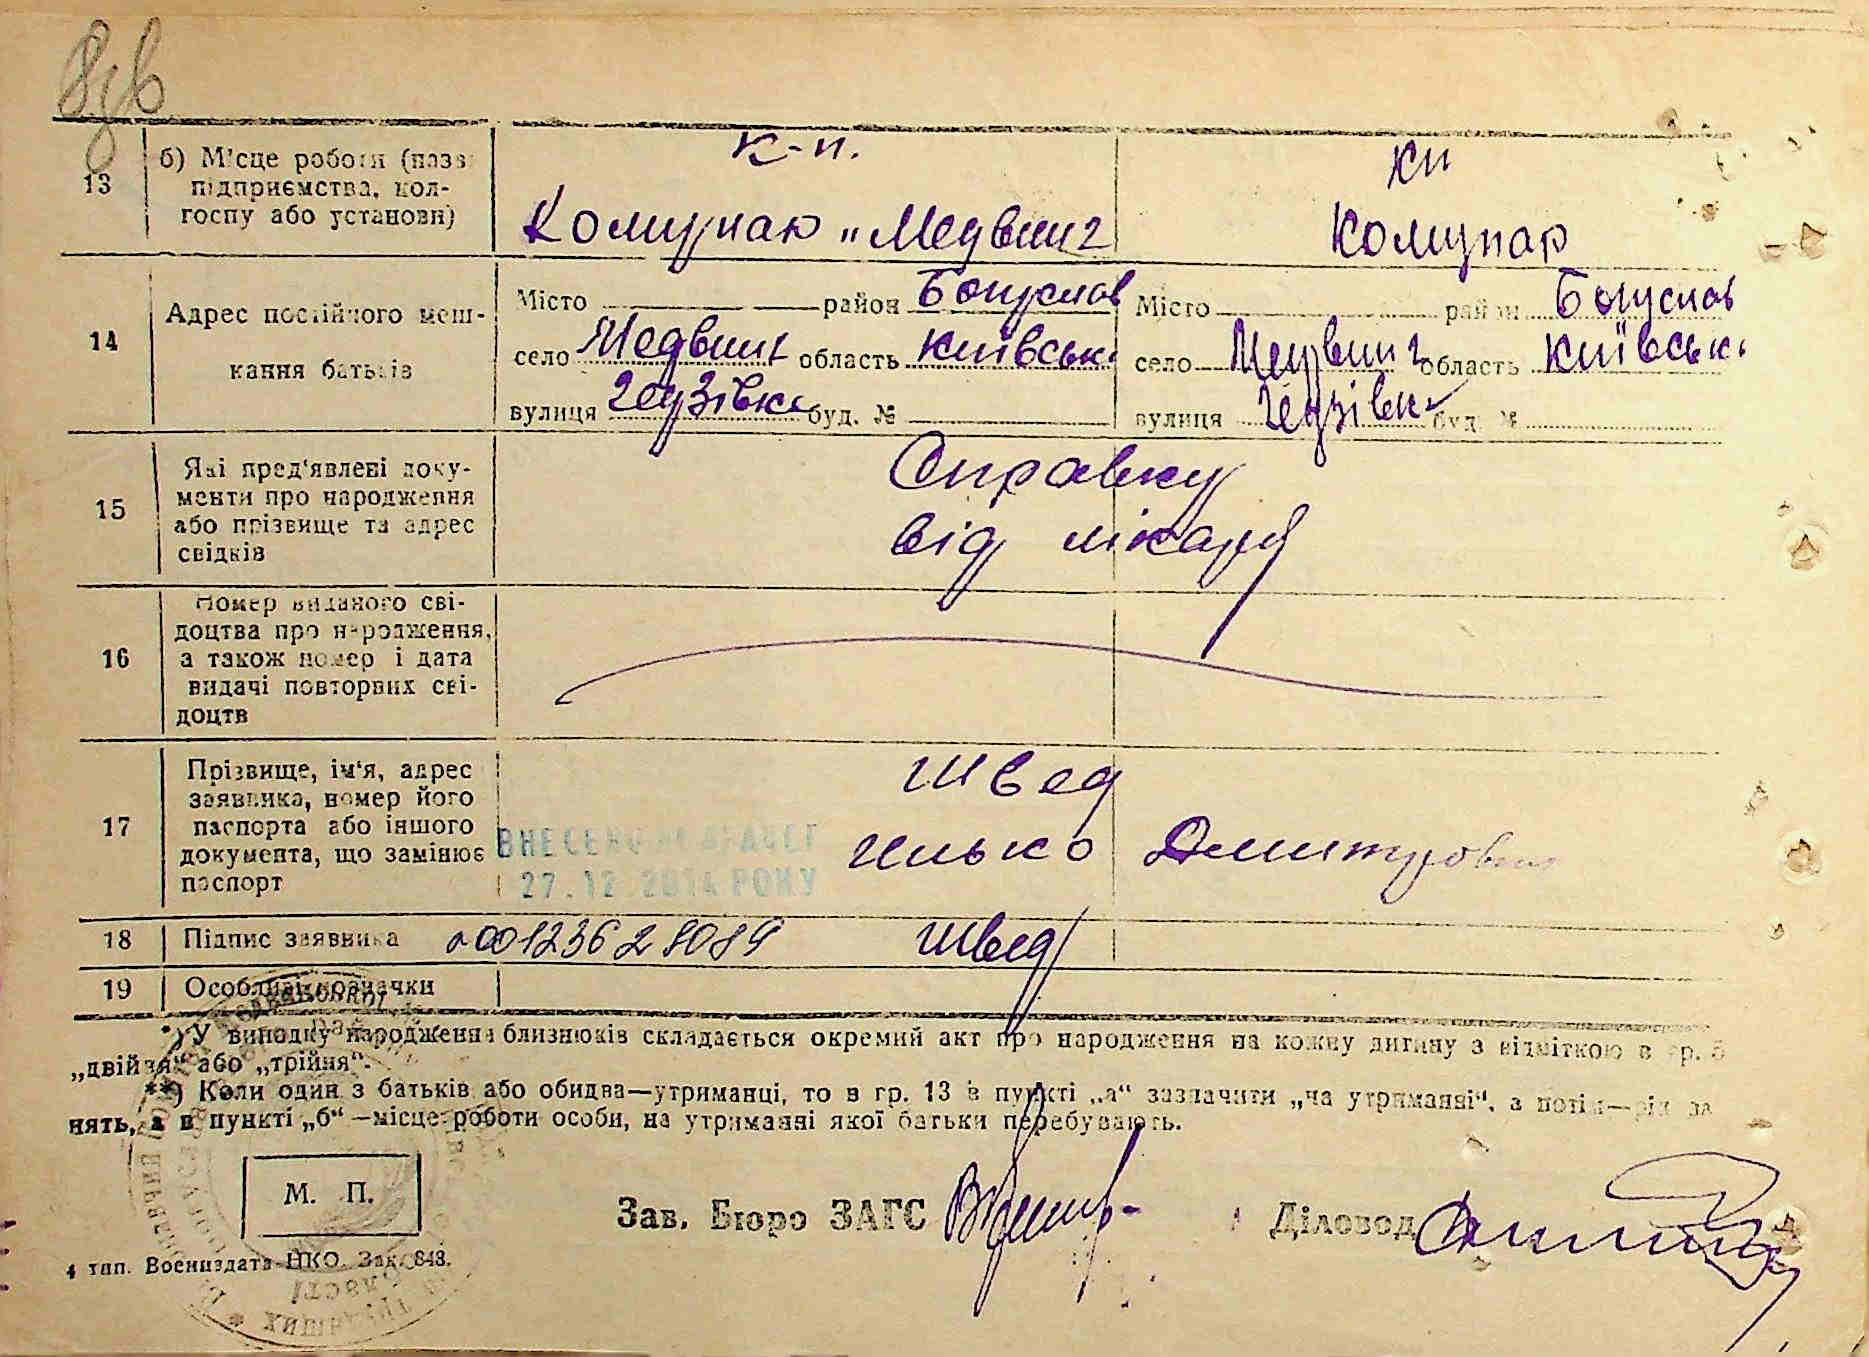 13 б) Місце роботи (назва підприємства, колгоспу або установи)
к-п. Комунар „Медвин"
кп Комунар
14 Адрес постійного мешкання батьків
Місто район Богуслав
село Медвин область Київськ
вулиця буд. №
Місто район Богуслав
село Медвин область Київськ
вулиця буд. №
15 Які пред'явлені документи про народження або прізвище та адрес свідків
Справку
від лікаря
16 Номер виданого свідоцтва про народження, а також номер і дата видачі повторних свідоцтв
17 Прізвище, ім'я, адрес заявника, номер його паспорта або іншого документа, що замінює паспорт
Швед
Илько Дмитрович
ВНЕСЕНО ДО ДРАЦСГ
27.12.2014 РОКУ
18 Підпис заявника 00123628089 Швед
19 Особливі позначки
*) У випадку народження близнюків складається окремий акт про народження на кожну дитину з відміткою в гр. 5
„двійня" або „трійня".
**) Коли один з батьків або обидва—утриманці, то в гр. 13 в пункті „а" зазначити „на утриманні", а потім—рід за
нять, а в пункті „б"—місце роботи особи, на утриманні якої батьки перебувають.
М. П.
Зав. Бюро ЗАГС
Діловод
4 тип. Воениздата НКО. Зак. 843.